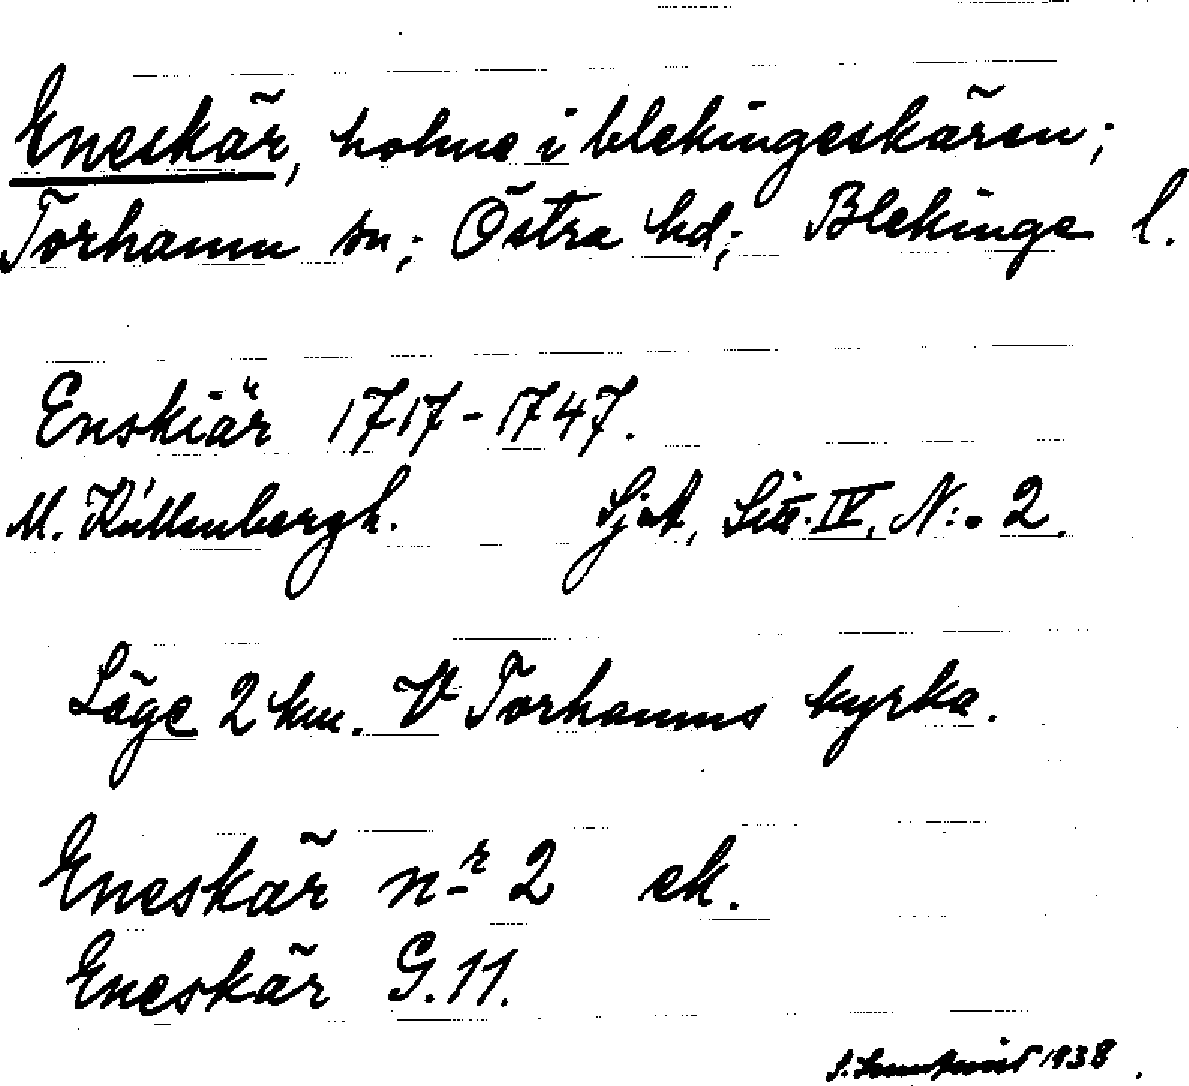 Eneskär, holme i blekingeskären;
Torhamn sn; Östra hd; Blekinge l.
Enskiär 1717-1747.
M. Küllenbergh. Sjöt, Litt. IV, N:o 2.
Läge 2 km. V Torhamns kyrka.
Eneskär nr 2 ek.
Eneskär G.11.
1938.